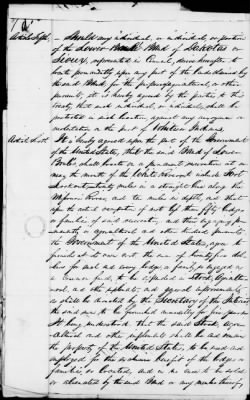 Article Fifth. Should any individual, or individuals, or portion
of the Lower Brulé Band of Dakotas or
Sioux, represented in Council, desire hereafter to
locate permanently upon any part of the land claimed by
the said Band, for the purpose of agricultural, or other
pursuits, it is hereby agreed by the parties to this
treaty that such individual, or individuals, shall be
protected in such location against any annoyance or
molestation on the part of Whites or Indians.
Article Sixth. It is hereby agreed upon the part of the Government
of the United States, that the Band of
shall locate on a permanent reservation at or
near the mouth of the White River, to include Fort
twenty miles in a straight line along the
Missouri River, and ten miles in depth, and that
upon the actual occupation of not less than fifty lodges
or families of said reservation, and their engaging
in agricultural and other kindred pursuits
the Government of the United States, agree to
furnish at its own cost, the sum of twenty five dol-
lars for each and every lodge, or family, so engaged as
a common fund, to be expended in stock, agricultu-
ral and other implements, and general improvements,
as shall be directed by the Secretary of the Interior
the said sum to be furnished annually for five years
it being understood that the said stock, agri-
cultural and other implements shall be and remain
the property of the United States, to be used and
employed for the exclusive benefit of the lodges or
families, so located, and in no case to be sold
or alienated by the said Band or any member thereof,